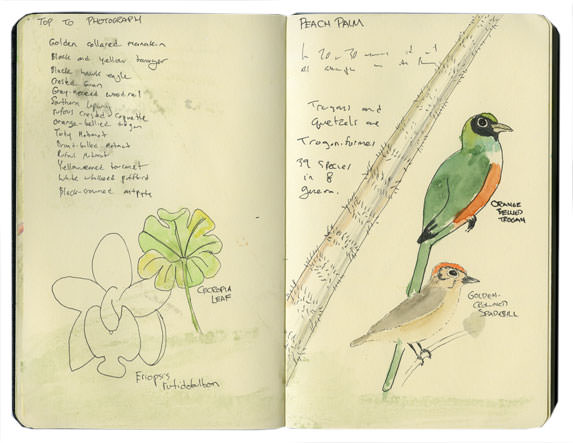 TOP TO PHOTOGRAPH
Golden collared manakin
Black and yellow tanager
Black hawk eagle
Crested Guan
Gray-necked woodrail
Southern Lapwing
rufous crested coquette
orange-bellied trogon
Tody Motmot
Broad-billed motmot
Rufous Motmot
Yellow-eared toucanet
White whiskered puffbird
Black-crowned antpitta
CECROPIA
LEAF
Eriopsis
rutidobulbon
PEACH PALM
In 20 or 30
Trogons and
Quetzals are
Trogoniformes
39 species
in 8
genera.
ORANGE
BELLIED
TROGAN
GOLDEN-
CROWNED
SPADEBILL